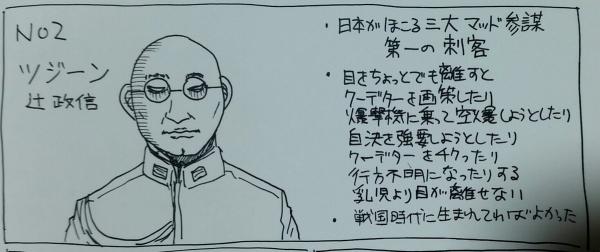 NO2
ツジーン
辻 政信
・日本がほこる三大マッド参謀
第一の刺客
・目をちょっとでも離すと
クーデターを画策したり
爆撃機に乗って空爆しようとしたり
自決を強要しようとしたり
クーデターをチクったり
行方不明になったりする
乳児より目が離せない
・戦国時代に生まれてればよかった